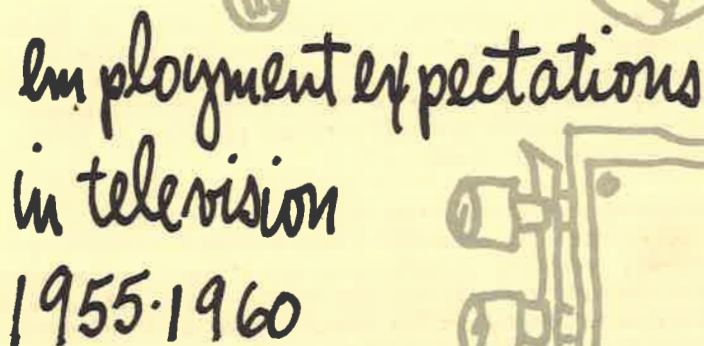 employment expectations
in television
1955·1960